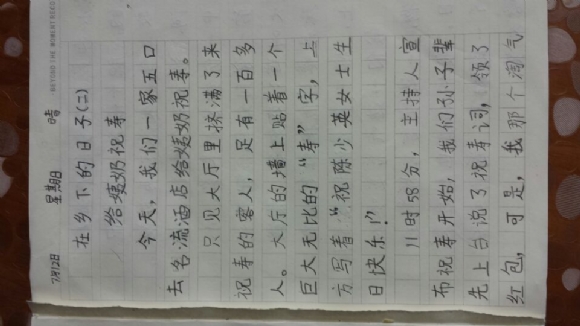 BEYOND THE MOMENT
7月12日 星期日 晴
在乡下的日子(二)
给姨奶祝寿
今天，我们一家五口
去名流酒店给姨奶祝寿。
只见大厅里挤满了来
祝寿的客人，足有一百多
人。大厅的墙上贴着一个
巨大无比的“寿”字，上
方写着“祝陈少英女士生
日快乐！”
11时58分，主持人宣
布祝寿开始，我们孙子辈
先上台说了祝寿词，领了
红包，可是，我那个淘气